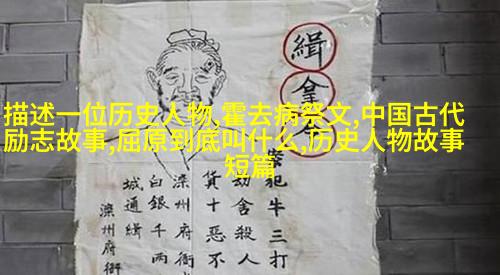 描述一位历史人物,霍去病祭文,中国古代
励志故事,屈原到底叫什么,历史人物故事
短篇
緝拿
犯牛三打
劫舍殺人
貨十惡不
滦州府衙
白銀千两
城通緝
滦州府衙